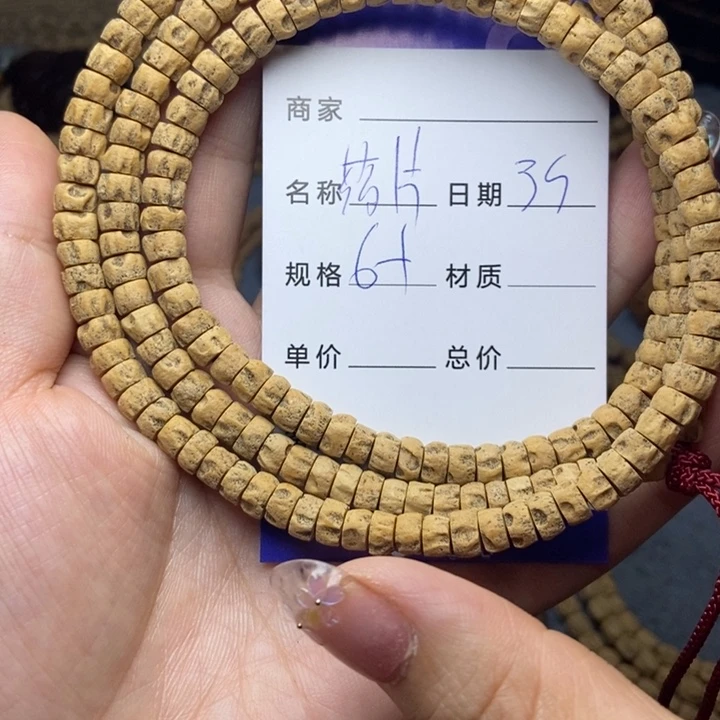 商家
名称 片 日期 35
规格 6+ 材质
单价 总价